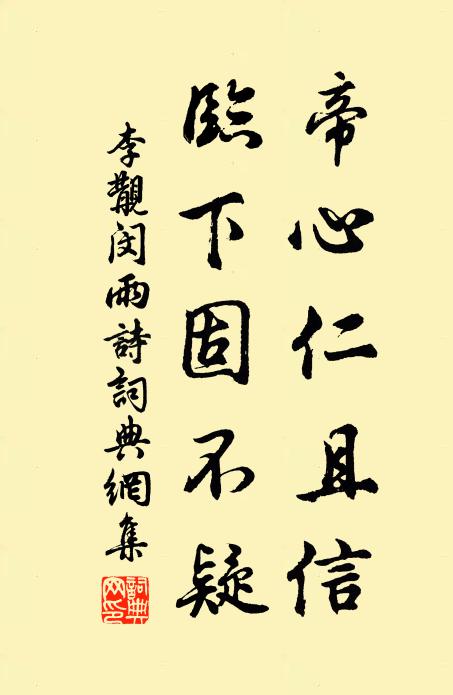 帝心仁且信
臨下固不疑
李覯閔雨詩詞典網集
詞典
网印